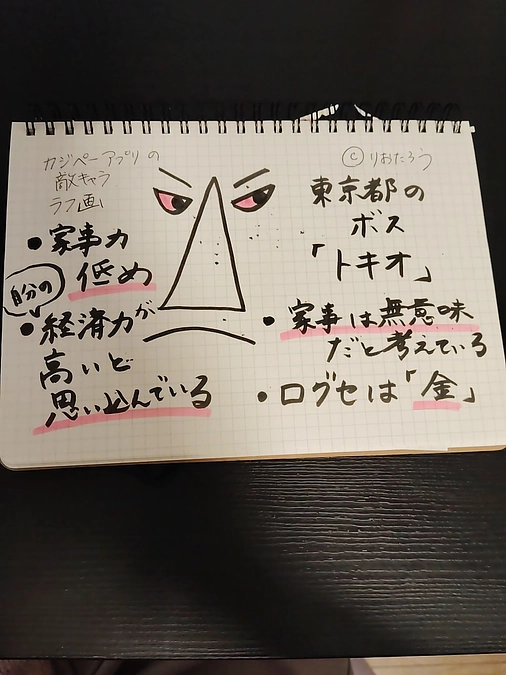 カジペーアプリの
敵キャラ
ラフ画
● 家事力
低め
自分の
● 経済力が
高いと
思い込んでいる
© りおたろう
東京都の
ボス
「トキオ」
● 家事は無意味
だと考えている
● ログセは「金」